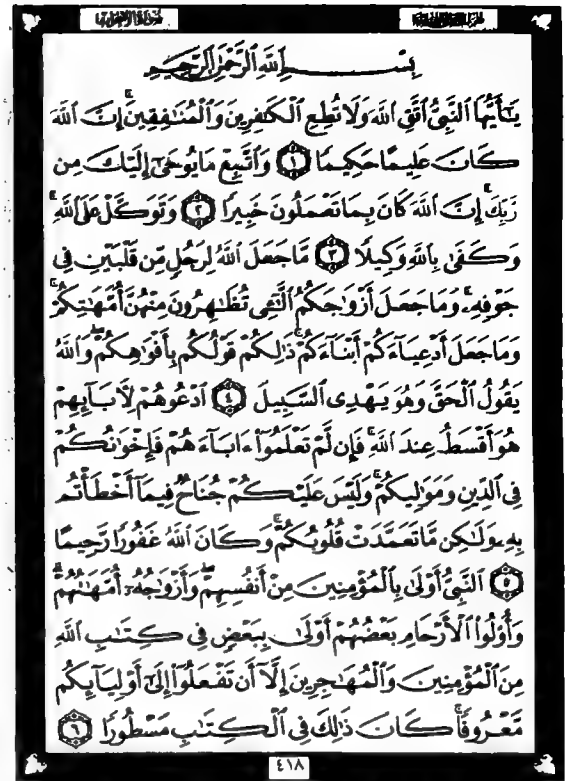 بِسْمِ ٱللَّهِ ٱلرَّحْمَٰنِ ٱلرَّحِيمِ
يَٰٓأَيُّهَا ٱلنَّبِىُّ ٱتَّقِ ٱللَّهَ وَلَا تُطِعِ ٱلْكَٰفِرِينَ وَٱلْمُنَٰفِقِينَ ۗ إِنَّ ٱللَّهَ
كَانَ عَلِيمًا حَكِيمًا ١ وَٱتَّبِعْ مَا يُوحَىٰٓ إِلَيْكَ مِن
رَّبِّكَ ۚ إِنَّ ٱللَّهَ كَانَ بِمَا تَعْمَلُونَ خَبِيرًا ٢ وَتَوَكَّلْ عَلَى ٱللَّهِ ۚ
وَكَفَىٰ بِٱللَّهِ وَكِيلًا ٣ مَّا جَعَلَ ٱللَّهُ لِرَجُلٍ مِّن قَلْبَيْنِ فِى
جَوْفِهِۦ ۚ وَمَا جَعَلَ أَزْوَٰجَكُمُ ٱلَّٰٓـِٔى تُظَٰهِرُونَ مِنْهُنَّ أُمَّهَٰتِكُمْ ۚ
وَمَا جَعَلَ أَدْعِيَآءَكُمْ أَبْنَآءَكُمْ ۚ ذَٰلِكُمْ قَوْلُكُم بِأَفْوَٰهِكُمْ ۖ وَٱللَّهُ
يَقُولُ ٱلْحَقَّ وَهُوَ يَهْدِى ٱلسَّبِيلَ ٤ ٱدْعُوهُمْ لِءَابَآئِهِمْ
هُوَ أَقْسَطُ عِندَ ٱللَّهِ ۚ فَإِن لَّمْ تَعْلَمُوٓا۟ ءَابَآءَهُمْ فَإِخْوَٰنُكُمْ
فِى ٱلدِّينِ وَمَوَٰلِيكُمْ ۚ وَلَيْسَ عَلَيْكُمْ جُنَاحٌ فِيمَآ أَخْطَأْتُم
بِهِۦ وَلَٰكِن مَّا تَعَمَّدَتْ قُلُوبُكُمْ ۚ وَكَانَ ٱللَّهُ غَفُورًا رَّحِيمًا
٥ ٱلنَّبِىُّ أَوْلَىٰ بِٱلْمُؤْمِنِينَ مِنْ أَنفُسِهِمْ ۖ وَأَزْوَٰجُهُۥٓ أُمَّهَٰتُهُمْ ۗ
وَأُو۟لُوا۟ ٱلْأَرْحَامِ بَعْضُهُمْ أَوْلَىٰ بِبَعْضٍ فِى كِتَٰبِ ٱللَّهِ
مِنَ ٱلْمُؤْمِنِينَ وَٱلْمُهَٰجِرِينَ إِلَّآ أَن تَفْعَلُوٓا۟ إِلَىٰٓ أَوْلِيَآئِكُم
مَّعْرُوفًا ۚ كَانَ ذَٰلِكَ فِى ٱلْكِتَٰبِ مَسْطُورًا ٦
٤١٨